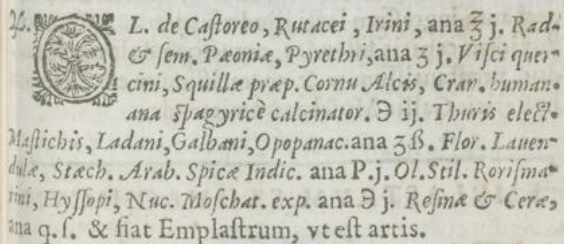 ℞. OL. de Caſtoreo, Rutacei, Irini, ana ℥ j. Rad.
& ſem. Pæoniæ, Pyrethri, ana ʒ j. Viſci quer-
cini, Squillæ præp. Cornu Alcis, Cran. human.
ana ſpagyricè calcinator. ℈ ij. Thuris elect.
Maſtichis, Ladani, Galbani, Opopanac. ana ʒ ß. Flor. Lauen-
dulæ, Stæch. Arab. Spicæ Indic. ana P. j. Ol. Stil. Roriſma-
rini, Hyſſopi, Nuc. Moſchat. exp. ana ℈ j. Reſinæ & Ceræ,
ana q. ſ. & fiat Emplaſtrum, vt eſt artis.